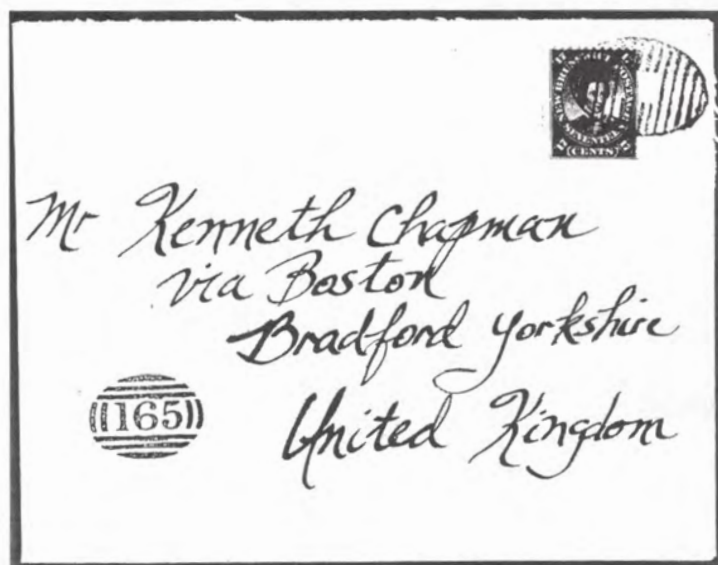 NEW BRUNSWICK POSTAGE
CENTS
Mr Kenneth Chapman
via Boston
Bradford Yorkshire
165
United Kingdom